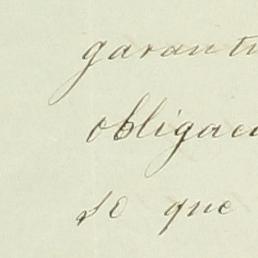 garanti
obligac
so que